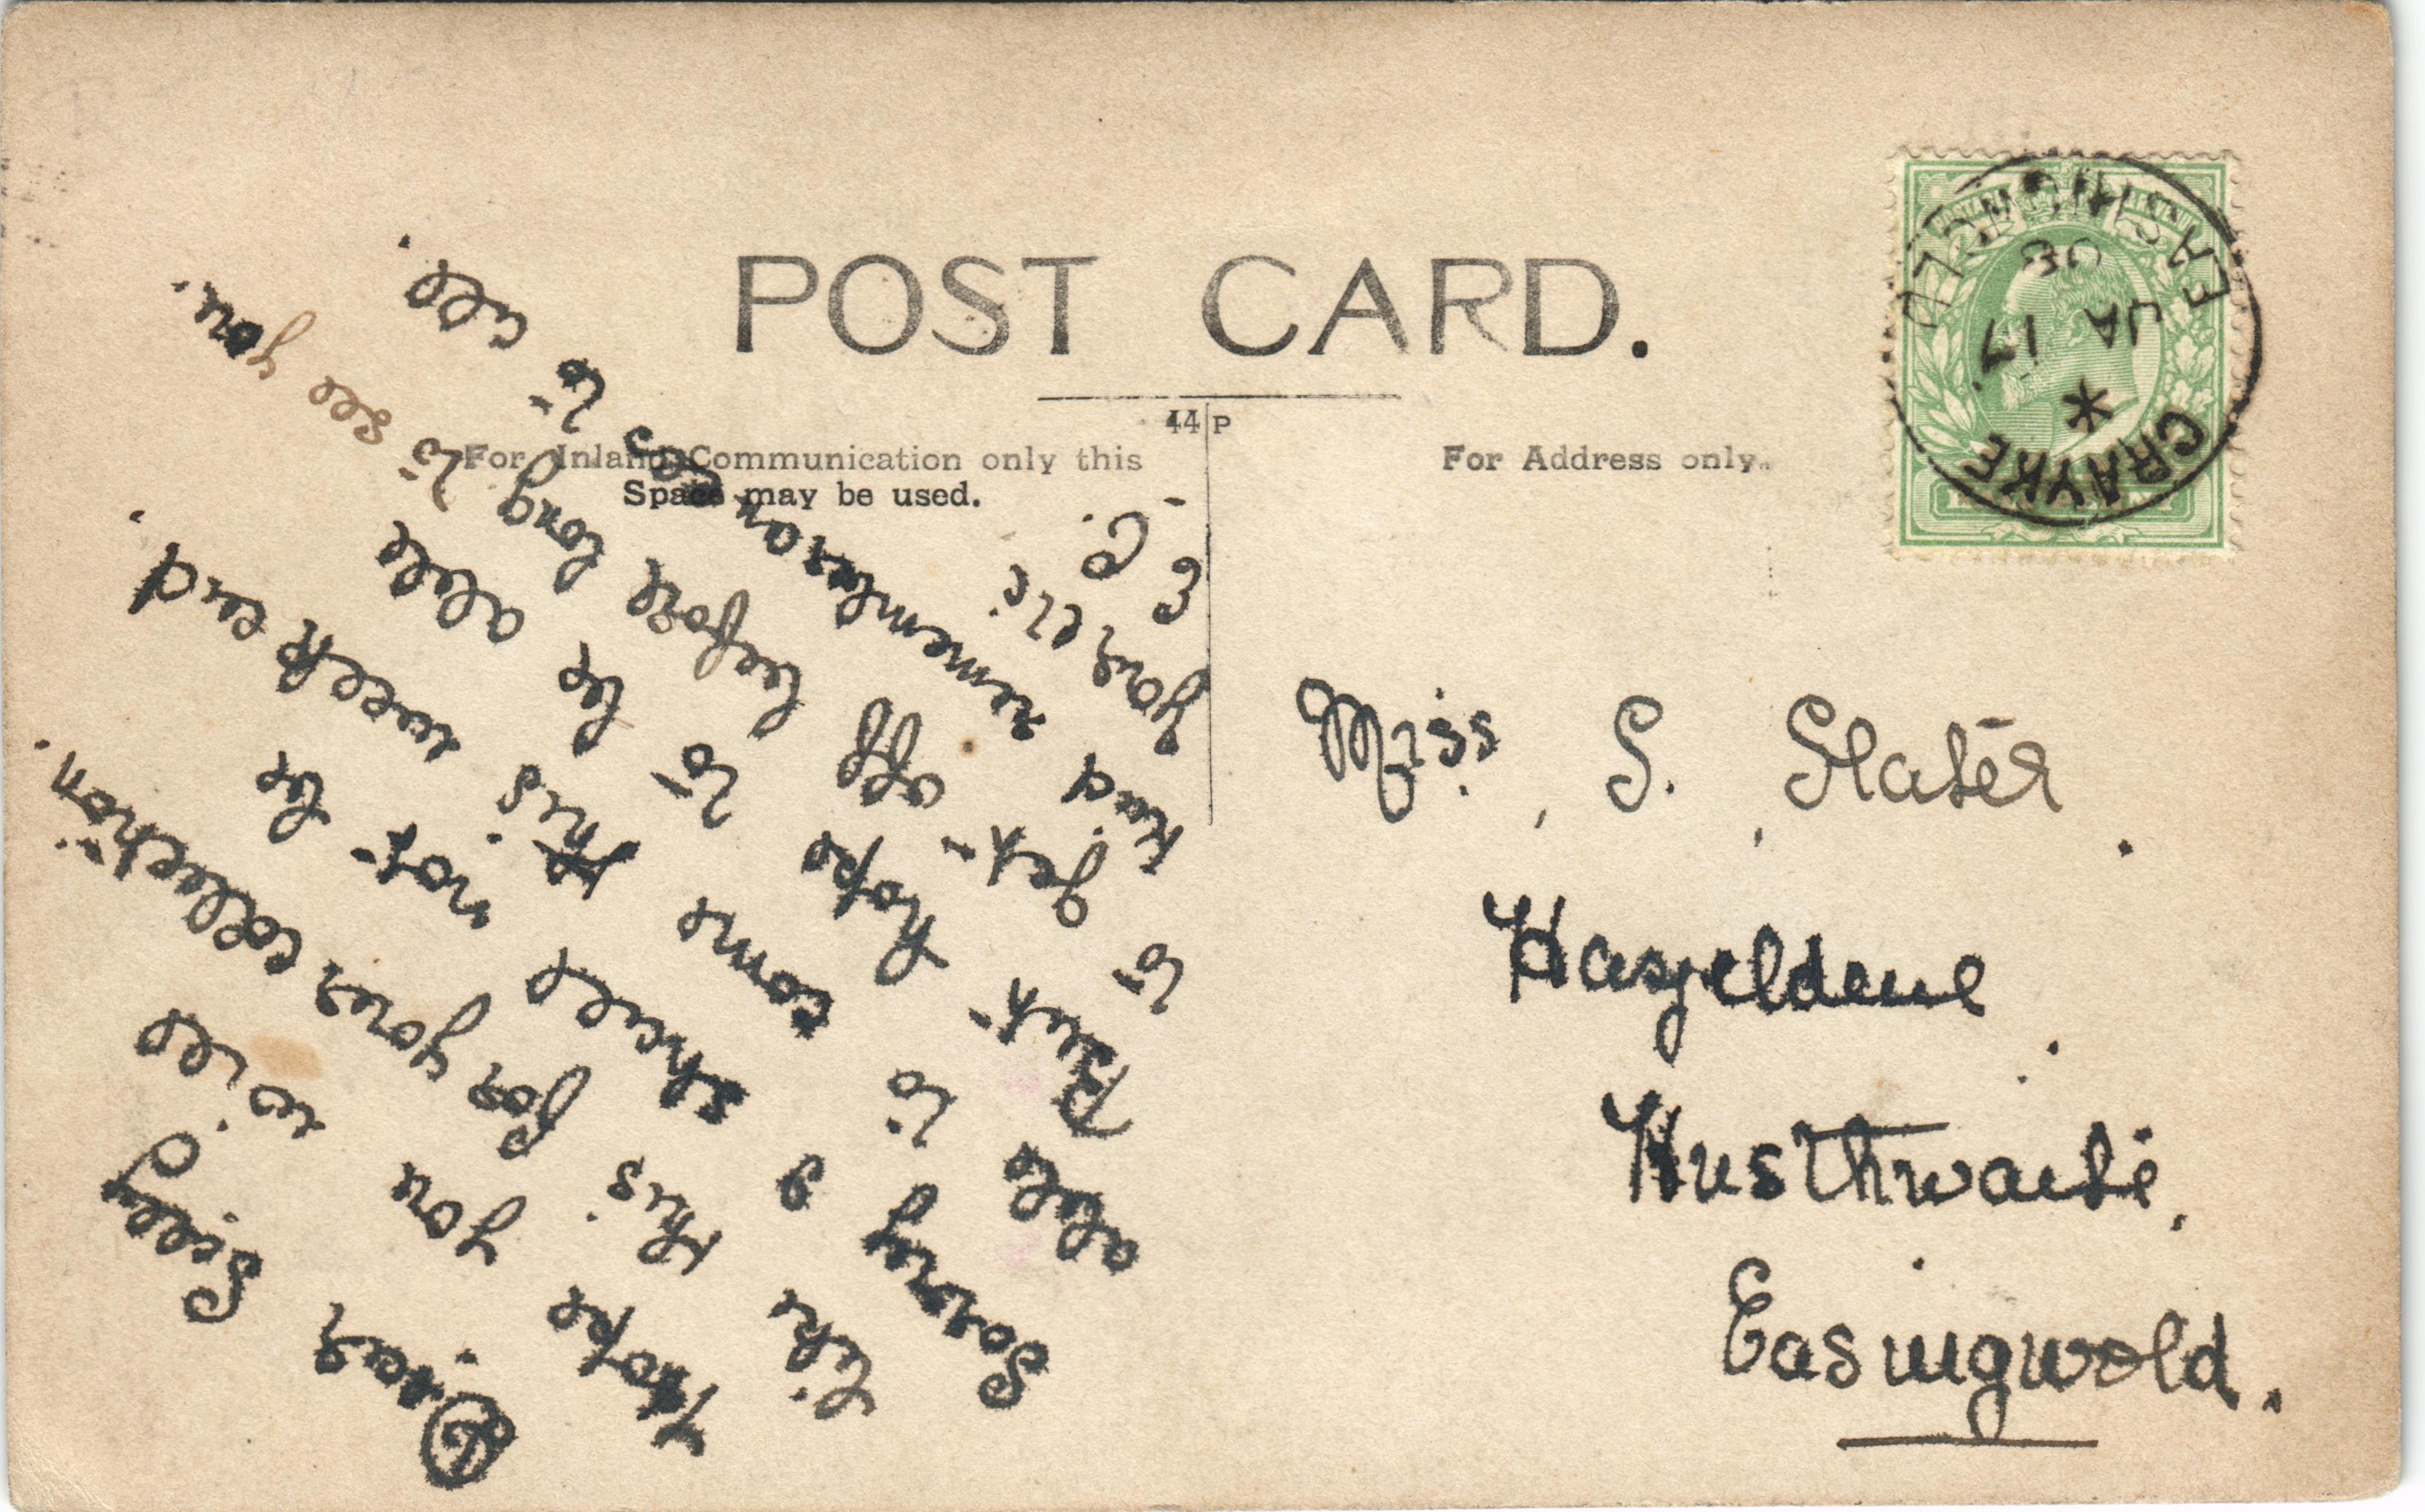 POST CARD.
44 P
For Inland Communication only this
Space may be used.
For Address only.
EASINGWOLD
CRAYKE
JA 17
08
Dear Silly
Hope you will
like this for your collection.
Sorry I shall not be
able to come this week end.
But hope to be able
to get off before long to see you.
Kind remembrances to all.
Yours etc
E. C.
Miss, S. Slater.
Hazeldene.
Husthwaite,
Easingwold.